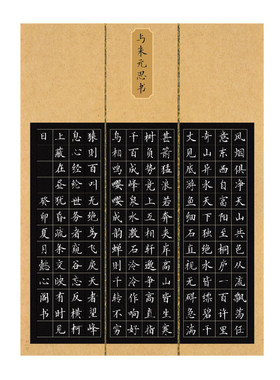 与朱元思书
风烟俱净天山共色从流飘荡任
意东西自富阳至桐庐一百许里
奇山异水天下独绝水皆缥碧千
丈见底游鱼细石直视无碍急湍
甚箭猛浪若奔夹岸高山皆生寒
树负势竞上互相轩邈争高直指
千百成峰泉水激石泠泠作响好
鸟相鸣嘤嘤成韵蝉则千转不穷
猿则百叫无绝鸢飞戾天者望峰
息心经纶世务者窥谷忘反横柯
上蔽在昼犹昏疏条交映有时见
日 癸卯夏月懿心阁书